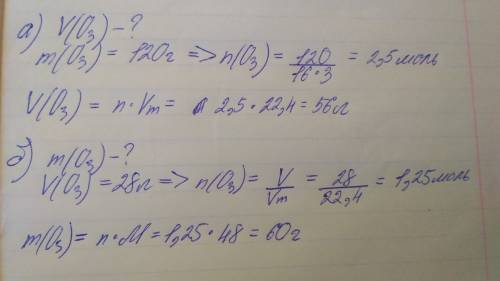 а) V(O₃) – ?
m(O₃) = 120г => n(O₃) = 120/16·3 = 2,5моль
V(O₃) = n·Vm = 2,5·22,4 = 56л
б) m(O₃) – ?
V(O₃) = 28л => n(O₃) = V/Vm = 28/22,4 = 1,25моль
m(O₃) = n·M = 1,25·48 = 60г